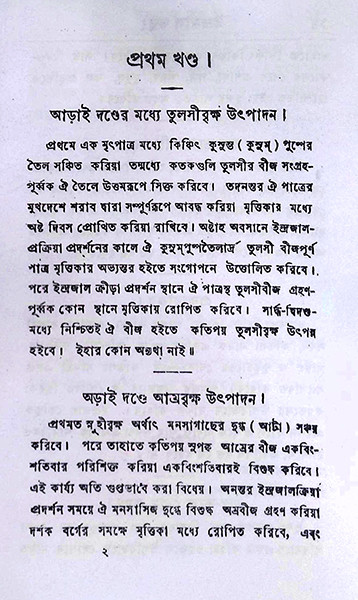 প্রথম খণ্ড।
আড়াই দণ্ডের মধ্যে তুলসীবৃক্ষ উৎপাদন।
প্রথমে এক মৃৎপাত্র মধ্যে কিঞ্চিৎ কুসুম্ভ (কুসুম্) পুষ্পের
তৈল সঞ্চিত করিয়া তন্মধ্যে কতকগুলি তুলসীর বীজ সংগ্রহ-
পূর্ব্বক ঐ তৈলে উত্তমরূপে সিক্ত করিবে। তদনন্তর ঐ পাত্রের
মুখদেশে শরাব দ্বারা সম্পূর্ণরূপে আবদ্ধ করিয়া মৃত্তিকার মধ্যে
অষ্ট দিবস প্রোথিত করিয়া রাখিবে। অষ্টাহ অবসানে ইন্দ্রজাল-
প্রক্রিয়া প্রদর্শনের কালে ঐ কুসুমপুষ্পতৈলার্দ্র তুলসী বীজপূর্ণ
পাত্র মৃত্তিকার অভ্যন্তর হইতে সংগোপনে উত্তোলিত করিবে।
পরে ইন্দ্রজাল ক্রীড়া প্রদর্শন স্থানে ঐ পাত্রস্থ তুলসীবীজ গ্রহণ-
পূর্ব্বক কোন স্থানে মৃত্তিকায় রোপিত করিবে। সার্দ্ধ-দ্বিদণ্ড-
মধ্যে নিশ্চিতই ঐ বীজ হইতে কতিপয় তুলসীবৃক্ষ উৎপন্ন
হইবে। ইহার কোন অন্যথা নাই॥
অড়াই দণ্ডে আম্রবৃক্ষ উৎপাদন।
প্রথমত স্নুহীবৃক্ষ অর্থাৎ মনসাগাছের দুগ্ধ (আটা) সঞ্চয়
করিবে। পরে তাহাতে কতিপয় সুপক্ব আম্রের বীজ একবিং-
শতিবার পরিশিক্ত করিয়া একবিংশতিবারই বিশুষ্ক করিবে।
এই কার্য্য অতি গুপ্তভাবে করা বিধেয়। অনন্তর ইন্দ্রজালক্রিয়া
প্রদর্শন সময়ে ঐ মনসাসিজ দুগ্ধে বিশুষ্ক অম্রবীজ গ্রহণ করিয়া
দর্শক বর্গের সমক্ষে মৃত্তিকা মধ্যে রোপিত করিবে, এবং
২